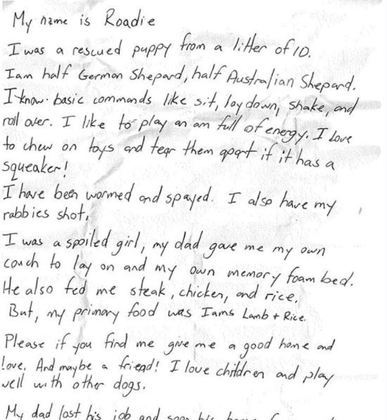 My name is Roadie
I was a rescued puppy from a litter of 10.
I am half German Shepard, half Australian Shepard.
I know basic commands like sit, lay down, shake, and
roll over. I like to play an am full of energy. I love
to chew on toys and tear them apart if it has a
squeaker!
I have been wormed and spayed. I also have my
rabbies shot,
I was a spoiled girl, my dad gave me my own
couch to lay on and my own memory foam bed.
He also fed me steak, chicken, and rice.
But, my primary food was Iams Lamb + Rice.
Please if you find me give me a good home and
love. And maybe a friend! I love children and play
well with other dogs.
My dad lost his job and soon his